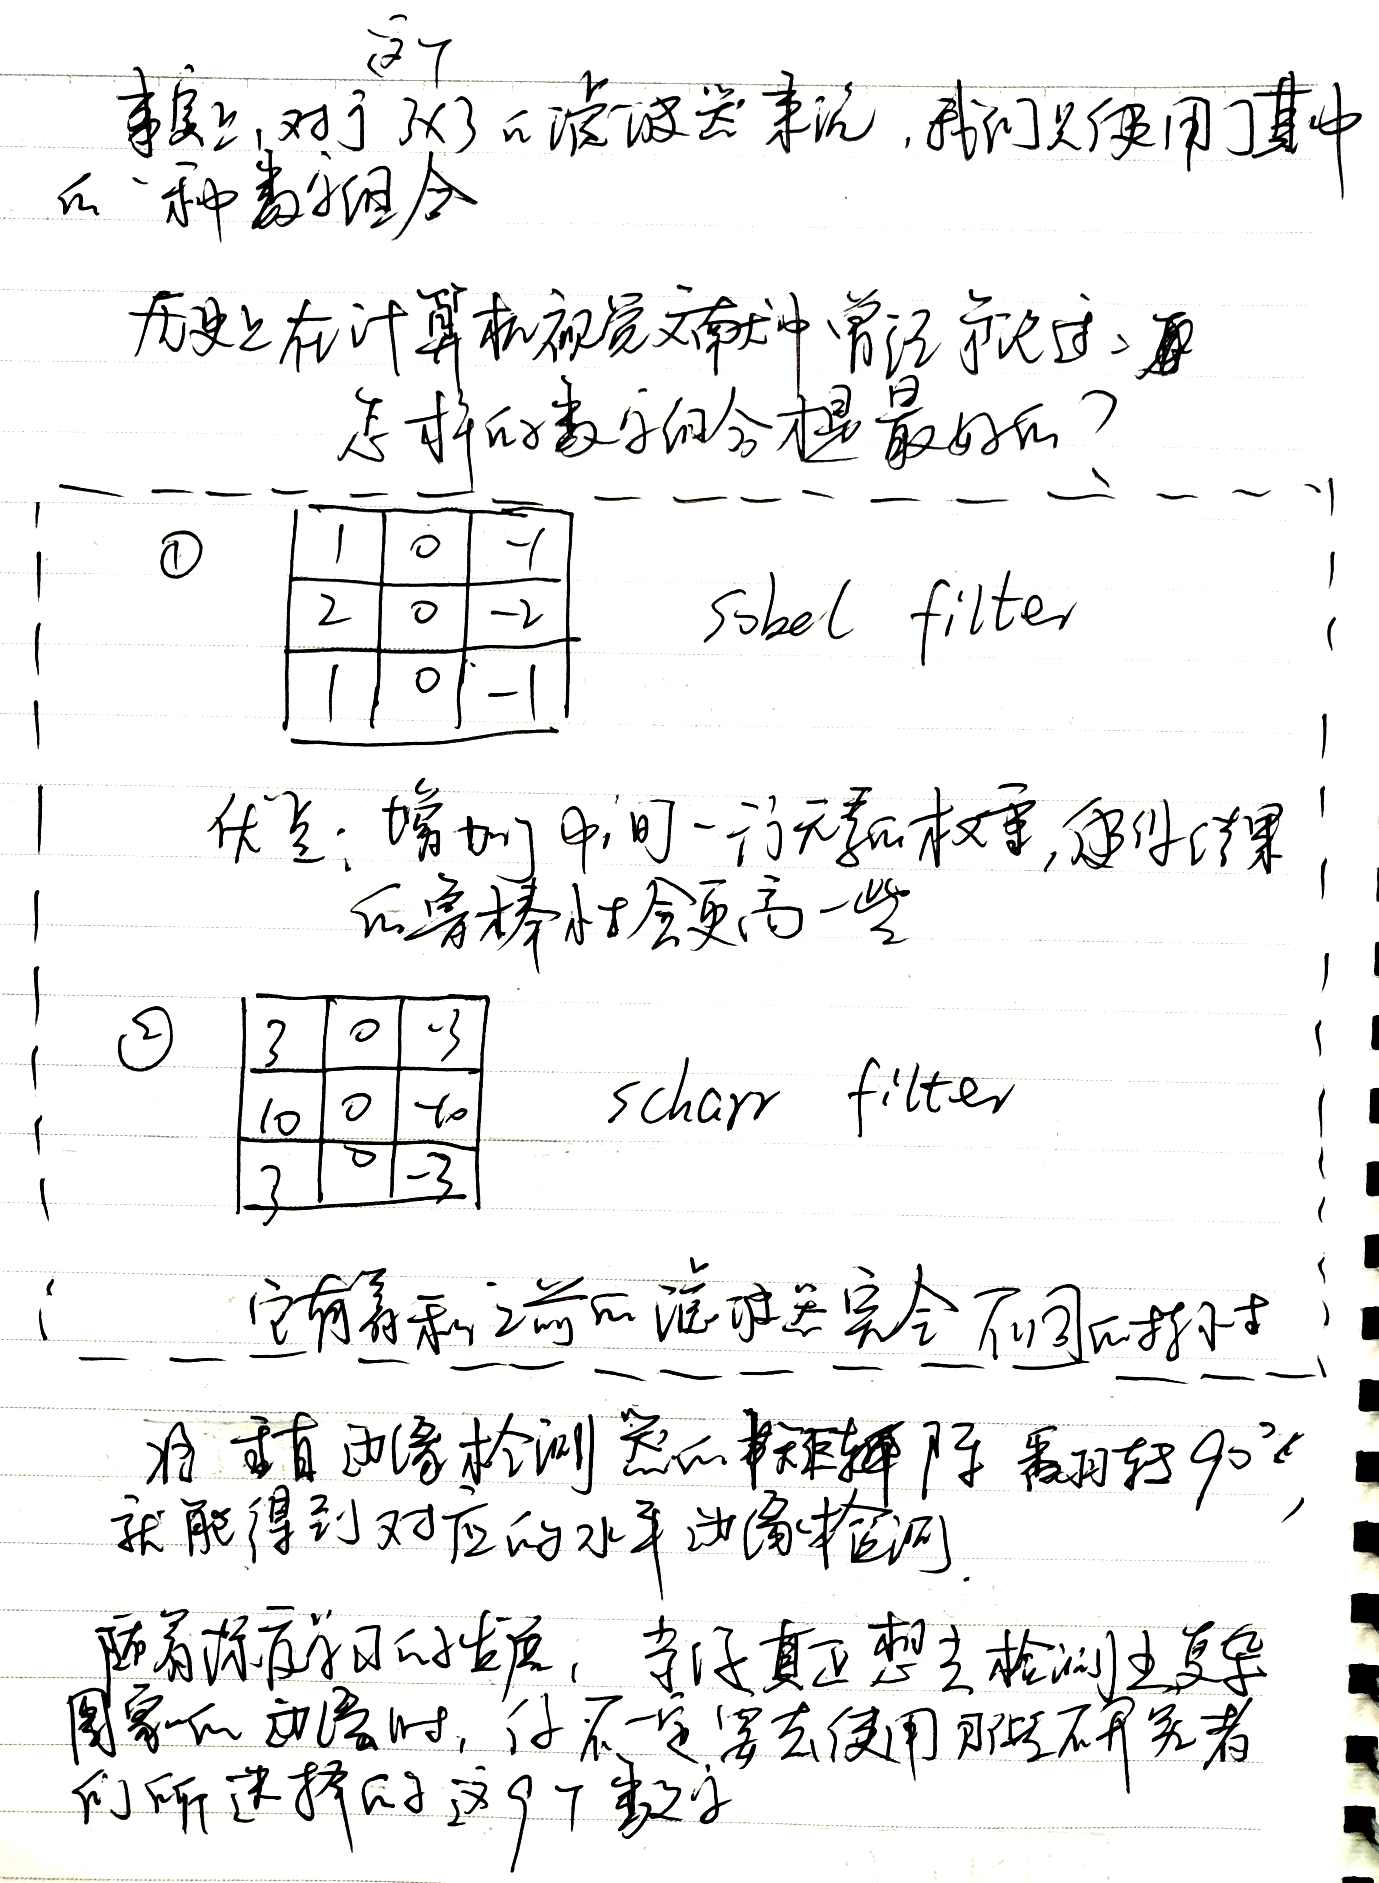 这个
事实上,对于3×3的滤波器来说,我们只使用了其中
的一种数字组合
历史上在计算机视觉文献中曾经争论过、
怎样的数字组合才是最好的?
① 1 0 -1
2 0 -2 sobel filter
1 0 -1
优点:增加了中间一行元素的权重,使得结果
的鲁棒性会更高一些
② 3 0 -3
10 0 -10 scharr filter
3 0 -3
它有着和之前的滤波器完全不同的特性
将垂直边缘检测器的矩阵翻转90°,
就能得到对应的水平边缘检测.
随着深度学习的发展,当你真正想去检测出复杂
图象的边缘时,你不一定要去使用那些研究者
们所选择的这9个数字